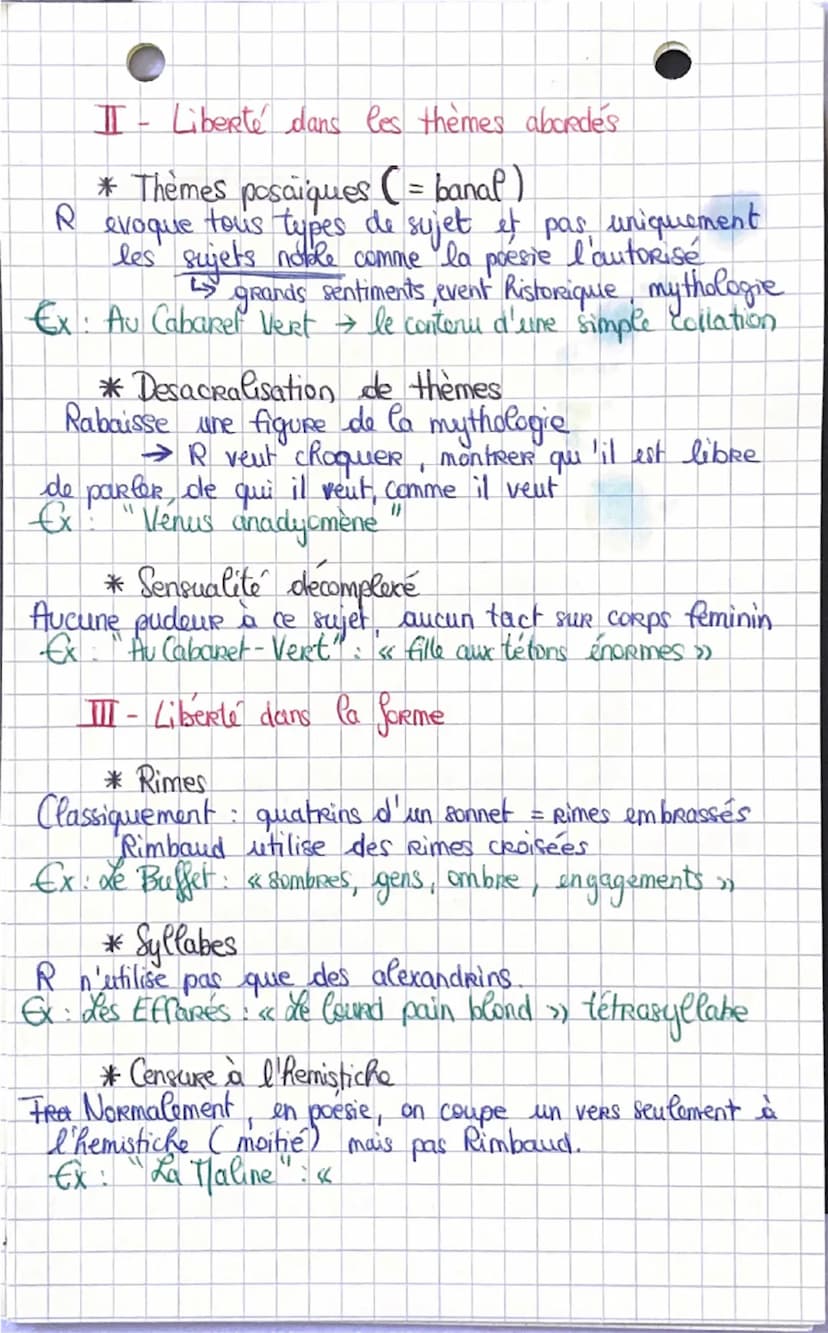 II - Liberté dans les thèmes abordés
* Thèmes posaïques (= banal)
R evoque tous types de sujet et pas uniquement
les sujets noble comme la poésie l'autorisé
↳ grands sentiments, event historique, mythologie
Ex : Au Cabaret Vert → le contenu d'une simple collation
* Desacralisation de thèmes
Rabaisse une figure de la mythologie
→ R veut choquer, montrer qu'il est libre
de parler, de qui il veut, comme il veut
Ex : "Vénus anadyomène"
* Sensualité décomplexé
Aucune pudeur à ce sujet, aucun tact sur corps féminin
Ex : "Au Cabaret-Vert" : « fille aux tétons énormes »
III - Liberté dans la forme
* Rimes
Classiquement : quatrins d'un sonnet = rimes embrassés
Rimbaud utilise des rimes croisées
Ex : Le Buffet : « sombres, gens, ombre, engagements »
* Syllabes
R n'utilise pas que des alexandrins.
Ex : Les Effarés : « Le lourd pain blond » tétrasyllabe
* Censure à l'hemistiche
Normalement, en poésie, on coupe un vers seulement à
l'hemistiche (moitié) mais pas Rimbaud.
Ex : "La Maline" : «